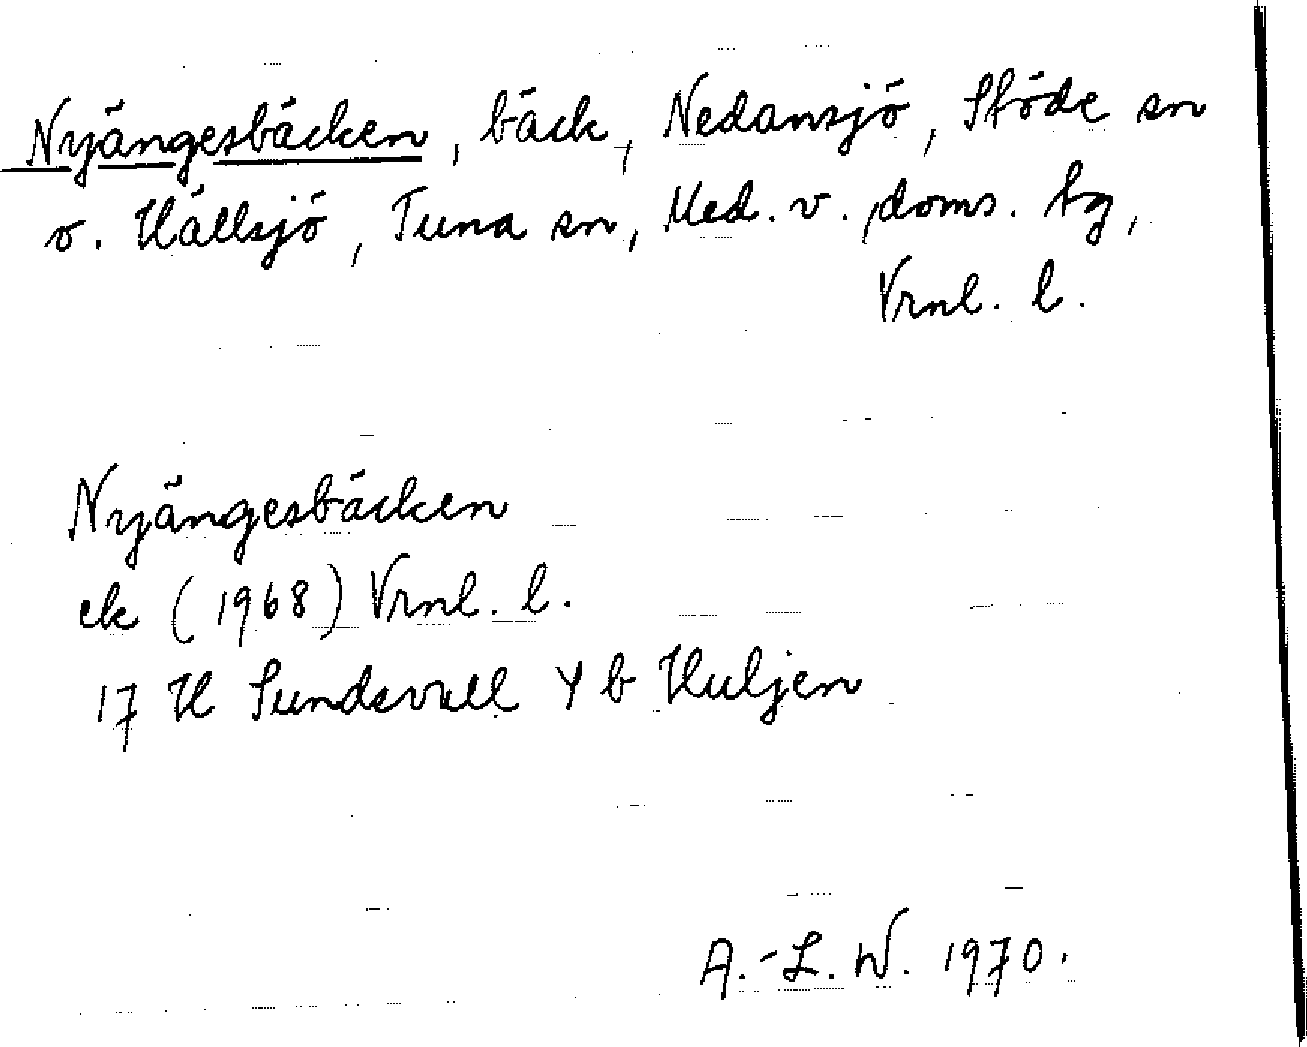 Nyängesbäcken, bäck, Nedansjö, Stöde sn
o. Hällsjö, Tuna sn, Med. v. doms. tg,
Vrnl. l.
Nyängesbäcken
ek (1968) Vrnl. l.
17 H Sundsvall Y b Huljen
A.-L. W. 1970.